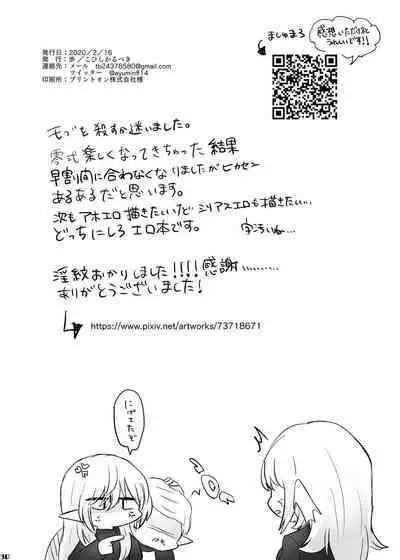 発行日：2020/2/16
発 行：歩／こひしかるべき
連絡先：メール tb24378580@gmail.com
ツイッター @ayuminfl14
印刷所：プリントオン株式会社様
ましゅまろ
感想いただけると
うれしいです!!
モブを殺すか迷いました。
零式楽しくなってきちゃった結果
早割間に合わなくなりましたがヒカセン
あるあるだと思います。
次もアホエロ描きたいけどシリアスエロも描きたい…
どっちにしろエロ本です。
淫紋おかりしました!!!!感謝………
ありがとうございました!
https://www.pixiv.net/artworks/73718671
にげてたぞ